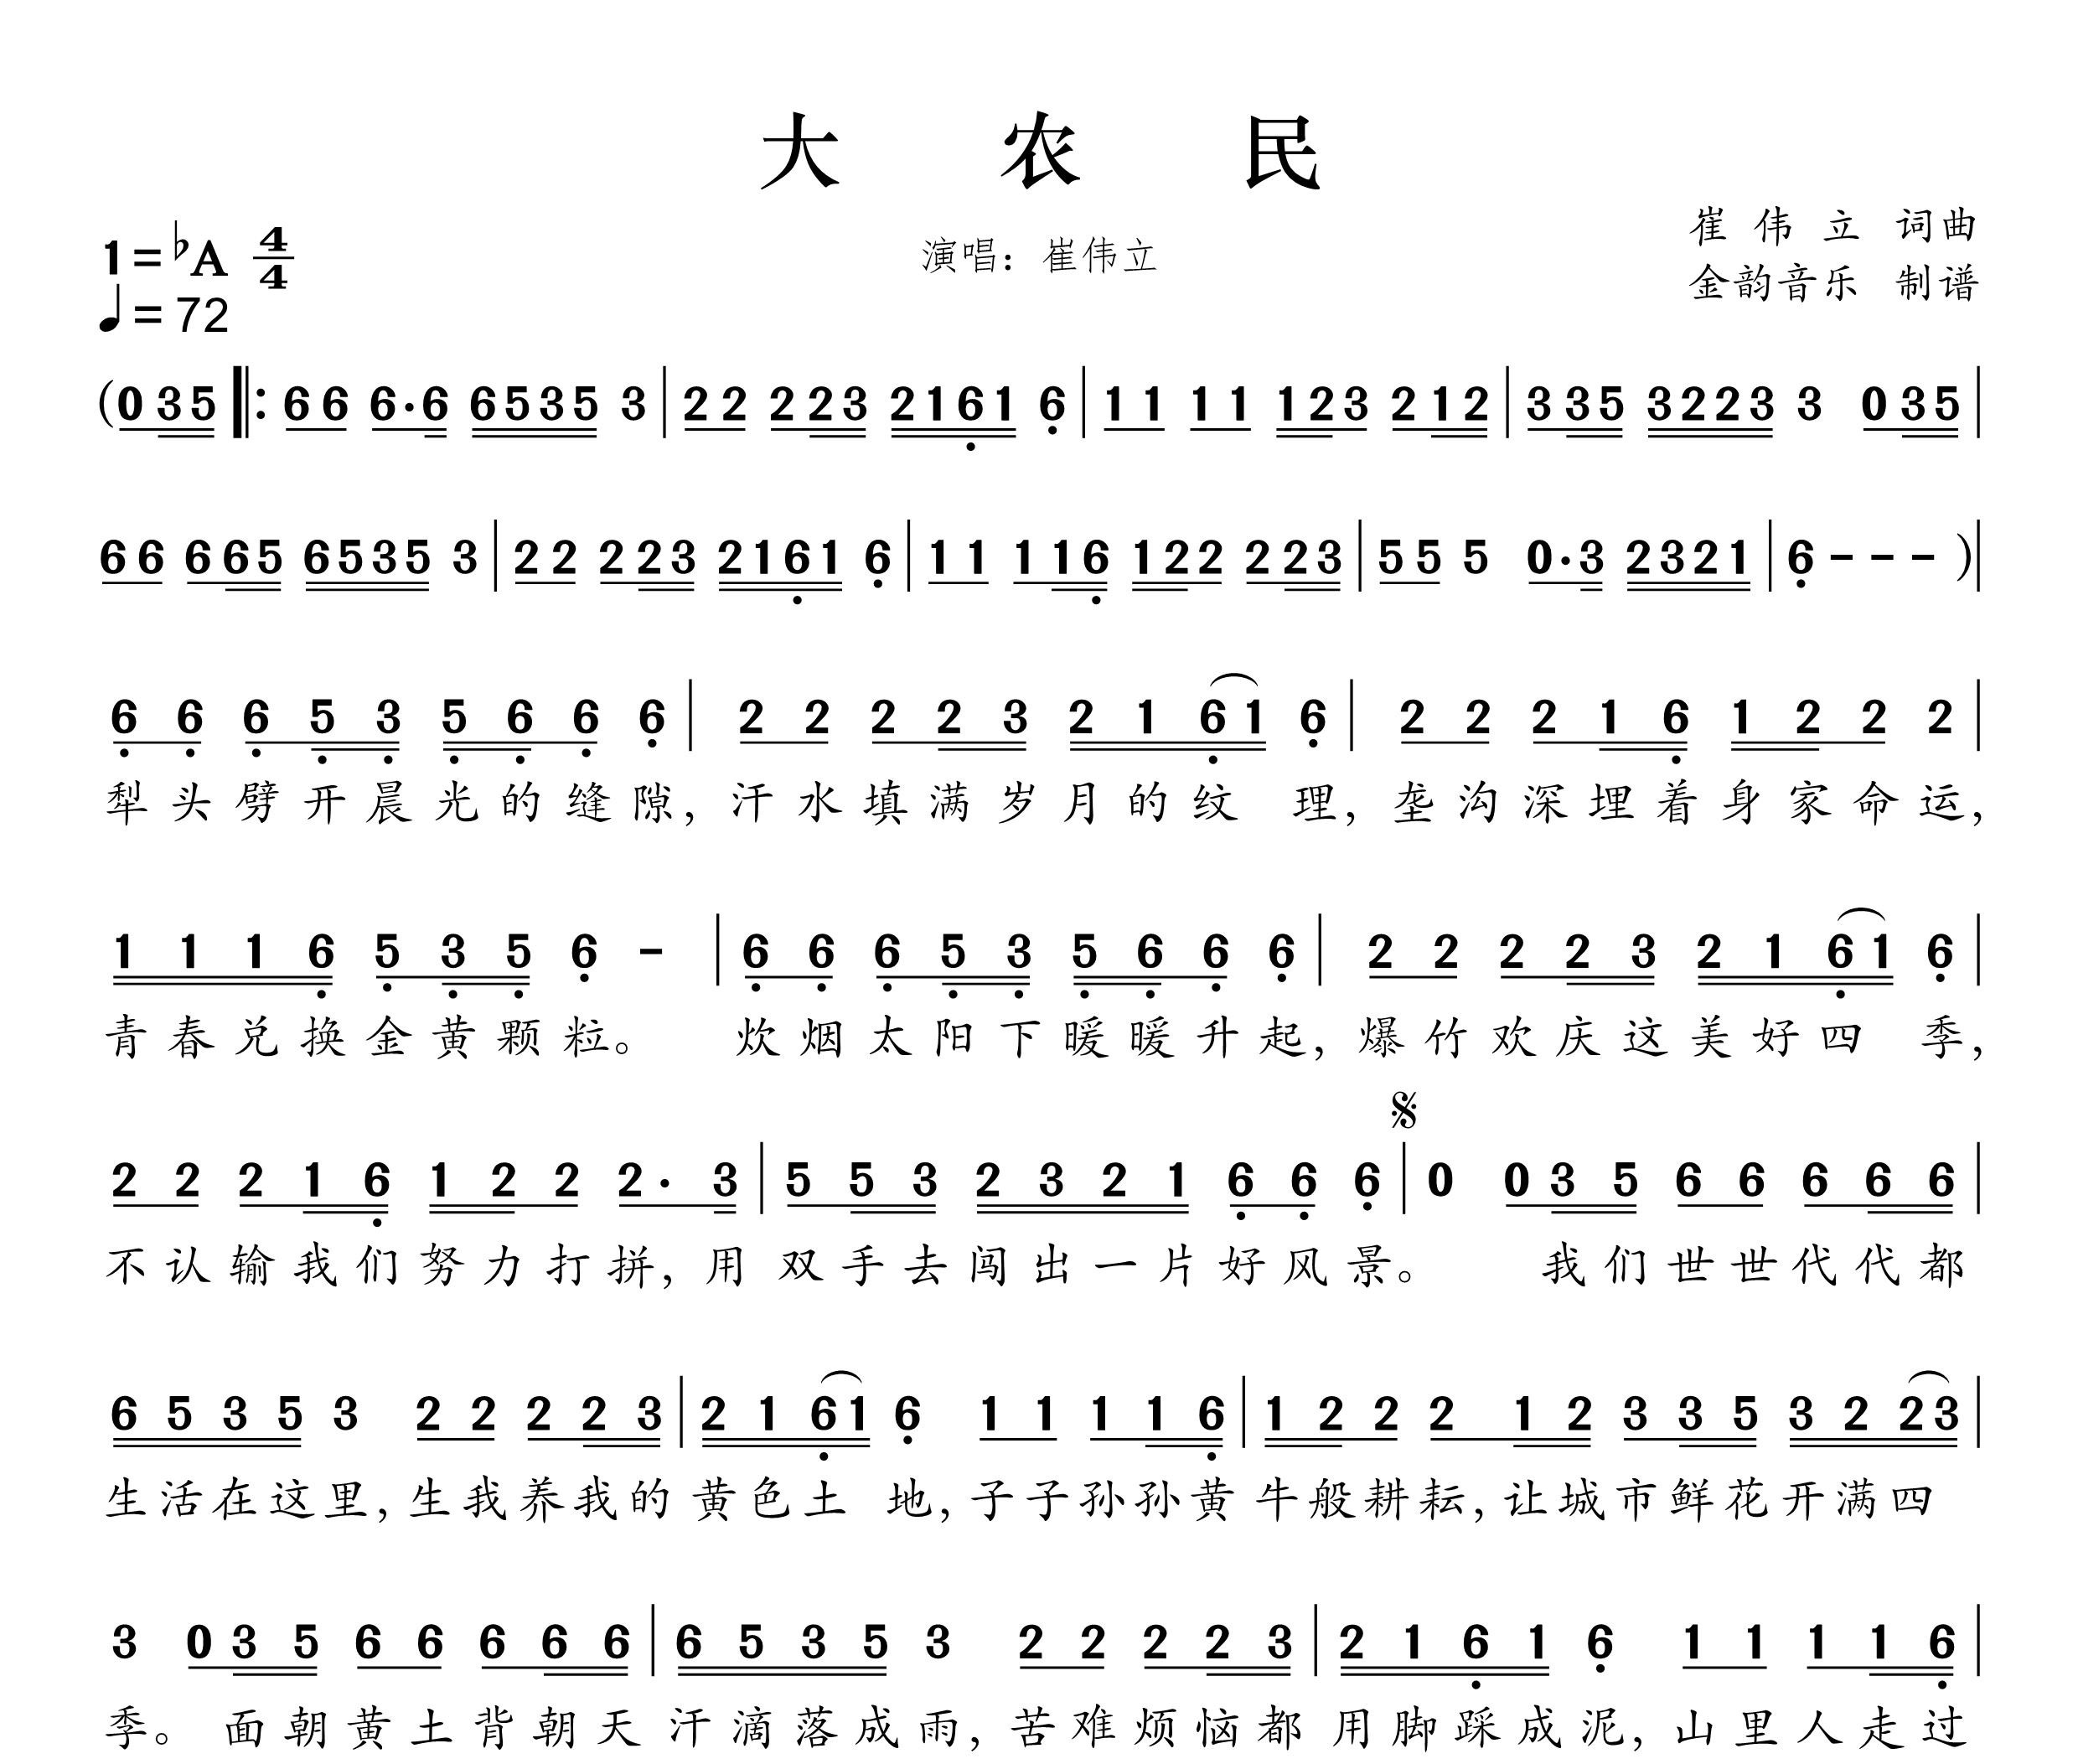 大 农 民
1=♭A 4/4
♩=72
演唱：崔伟立
崔 伟 立 词曲
金韵音乐 制谱
(0 3 5 ‖: 6 6 6·6 6 5 3 5 3 | 2 2 2 2 3 2 1 6̣ 1 6̣ | 1 1 1 1 1 2 3 2 1 2 | 3 3 5 3 2 2 3 3 0 3 5 |
6 6 6 6 5 6 5 3 5 3 | 2 2 2 2 3 2 1 6̣ 1 6̣ | 1 1 1 1 6̣ 1 2 2 2 2 3 | 5 5 5 0·3 2 3 2 1 | 6̣ - - - )|
6̣ 6̣ 6̣ 5̣ 3̣ 5̣ 6̣ 6̣ 6̣ | 2 2 2 2 3 2 1 6̣ 1 6̣ | 2 2 2 1 6̣ 1 2 2 2 |
犁头劈开晨光的缝隙，汗水填满岁月的纹 理，垄沟深埋着身家命运，
1 1 1 6̣ 5̣ 3̣ 5̣ 6̣ - | 6̣ 6̣ 6̣ 5̣ 3̣ 5̣ 6̣ 6̣ 6̣ | 2 2 2 2 3 2 1 6̣ 1 6̣ |
青春兑换金黄颗粒。 炊烟太阳下暖暖升起，爆竹欢庆这美好四 季，
2 2 2 1 6̣ 1 2 2 2· 3 | 5 5 3 2 3 2 1 6̣ 6̣ 6̣ | 𝄋 0 0 3 5 6 6 6 6 6 |
不认输我们努力打拼，用双手去闯出一片好风景。 我们世世代代都
6 5 3 5 3 2 2 2 2 3 | 2 1 6̣ 1 6̣ 1 1 1 1 6̣ | 1 2 2 2 1 2 3 3 5 3 2 2 3 |
生活在这里，生我养我的黄色土 地，子子孙孙黄牛般耕耘，让城市鲜花开满四
3 0 3 5 6 6 6 6 6 | 6 5 3 5 3 2 2 2 2 3 | 2 1 6̣ 1 6̣ 1 1 1 1 6̣ |
季。 面朝黄土背朝天汗滴落成雨，苦难烦恼都用脚踩成泥，山里人走过